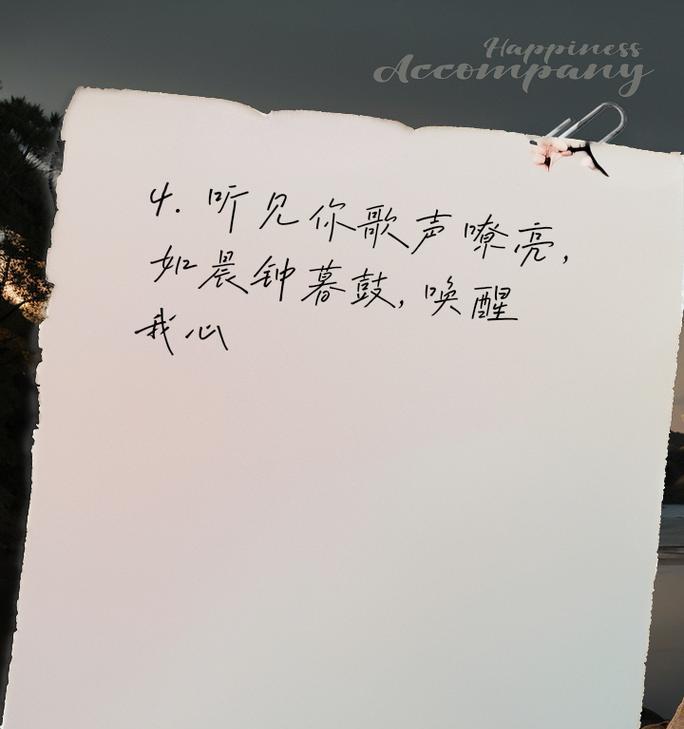 Happiness
Accompany
4. 听见你歌声嘹亮,
如晨钟暮鼓, 唤醒
我心